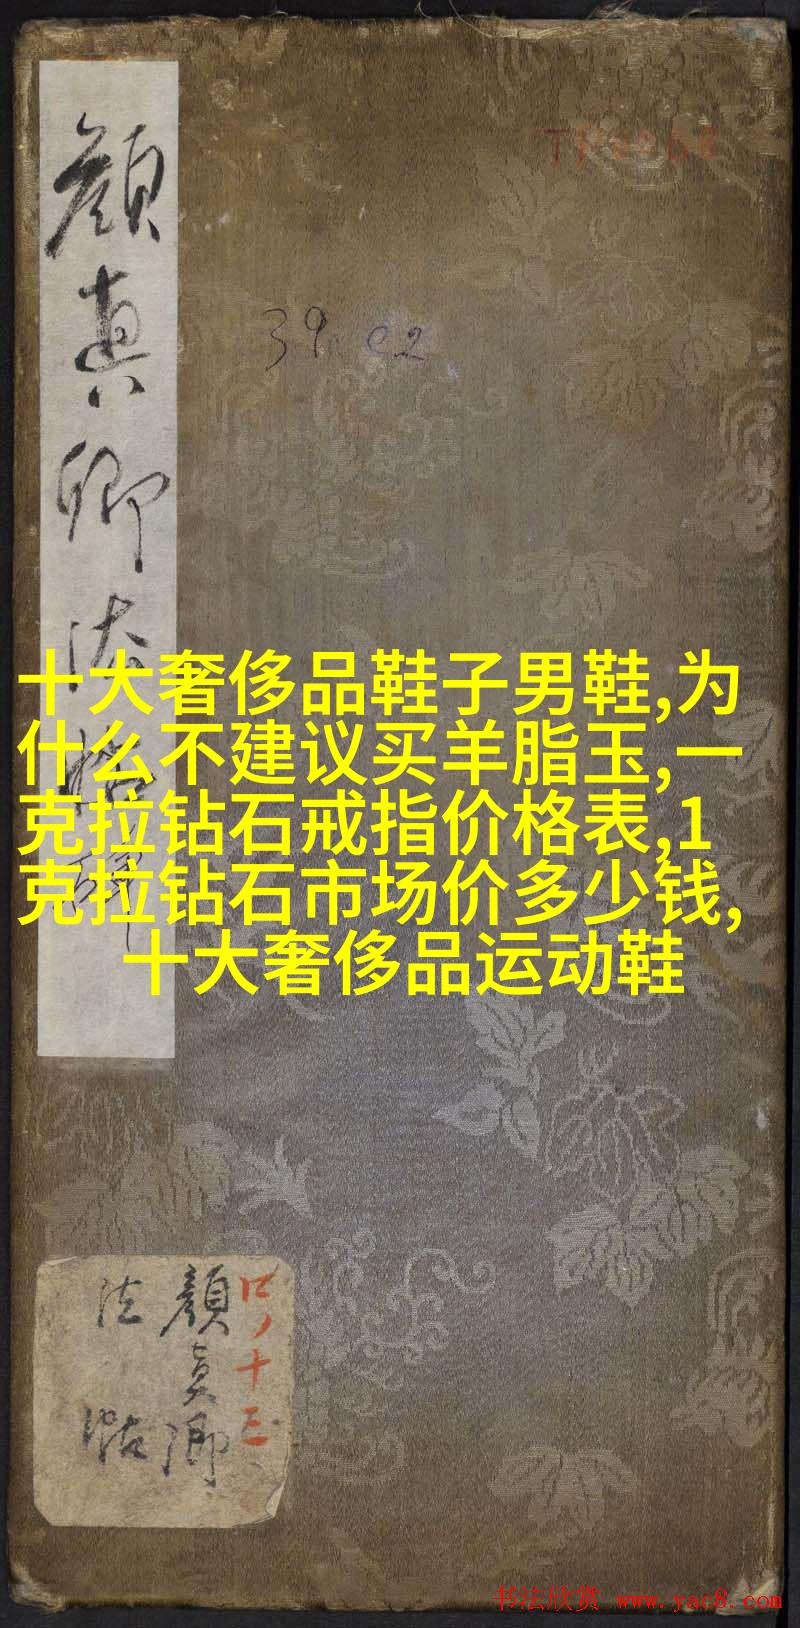 TP2068
39.c2
顔真卿法
十大奢侈品鞋子男鞋,为
什么不建议买羊脂玉,一
克拉钻石戒指价格表,1
克拉钻石市场价多少钱,
十大奢侈品运动鞋
口ノ十三
顔真卿
法帖
书法欣赏 www.yac8.com